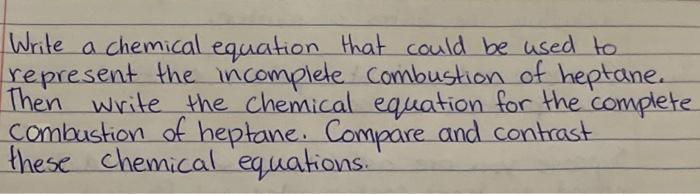 Write a chemical equation that could be used to
represent the incomplete combustion of heptane.
Then write the chemical equation for the complete
combustion of heptane. Compare and contrast
these chemical equations.